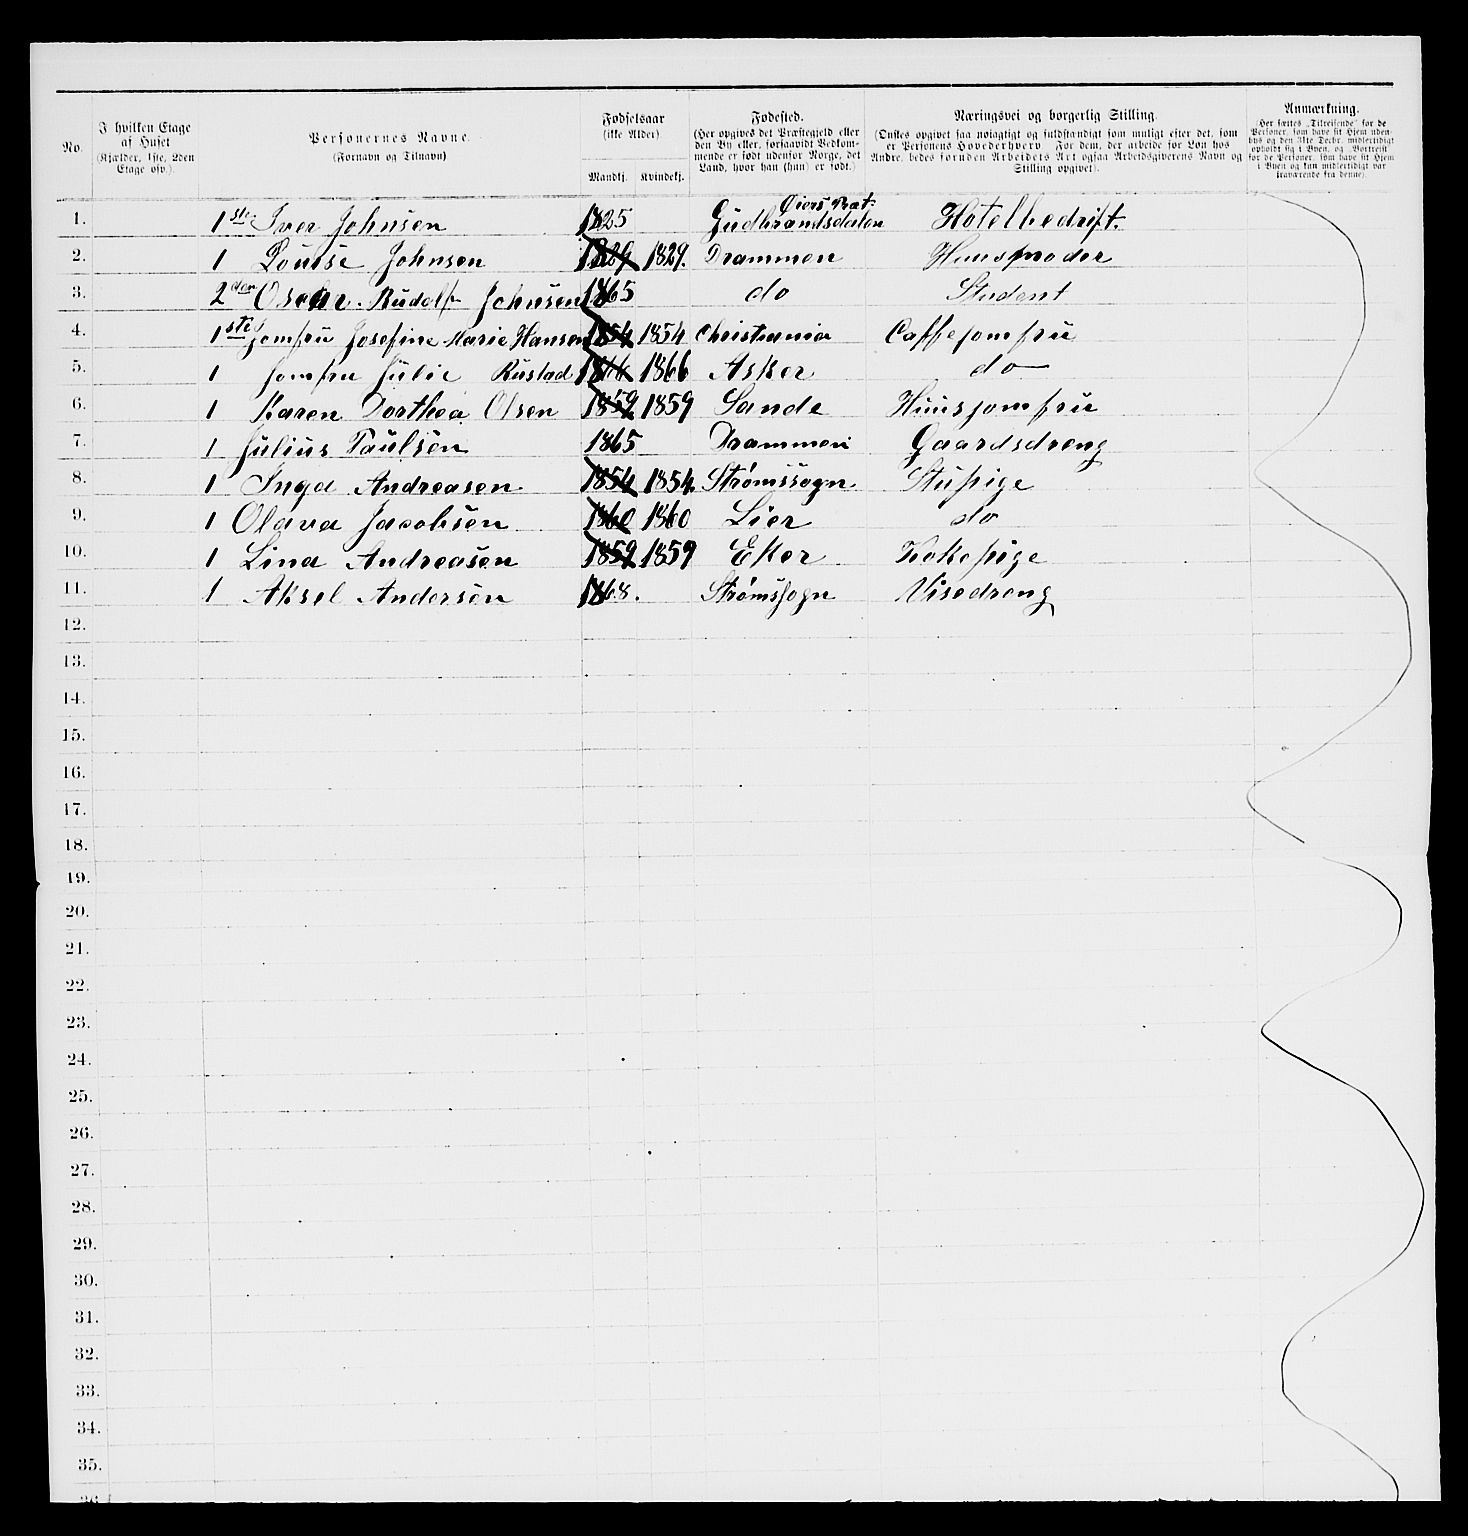 No.
I hvilken Etage
af Huset
(Kjælder, 1ste, 2den
Etage osv.).
Personernes Navne.
(Fornavn og Tilnavn)
Fødselsaar
(ikke Alder)
Mandkj. Kvindekj.
Fødested.
(Her opgives det Præstegjeld eller
den By eller, forsaavidt Vedkom-
mende er født udenfor Norge, det
Land, hvor han (hun) er født.)
Næringsvei og borgerlig Stilling.
(Ønskes opgivet saa nøiagtigt og fuldstændigt som muligt efter det, som
er Personens Hovederhverv. For dem, der arbeide for Løn hos
Andre, bedes foruden Arbeidets Art ogsaa Arbeidsgiverens Navn og
Stilling opgivet).
Anmærkning.
(Her sættes „Tilreisende“ for de
Personer, som have sit Hjem uden-
bys og den 31te Decbr. midlertidigt
opholdt sig i Byen, og „Bortreist“
for de Personer, som have sit Hjem
i Byen og kun midlertidigt var
fraværende fra denne).
Øiers Præt.
1. 1ste Iver Johnsen 1825 Gudbrandsdalen Hotelbedrift.
2. 1 Louise Johnsen 1829 1829. Drammen Huusmoder
3. 2den Oscar Rudolf Johnsen 1865 do Student
4. 1ste Jomfru Josefine Marie Hansen 1854 1854 Christiania Caffejomfru
5. 1 Jomfru Julie Rustad 1866 1866 Asker do
6. 1 Karen Dorthea Olsen 1859 1859 Sande Huusjomfru
7. 1 Julius Paulsen 1865 Drammen Gaardsdreng
8. 1 Inga Andreasen 1854 1854. Strømssogn Stupige
9. 1 Olava Jacobsen 1860 1860 Lier do
10. 1 Lina Andreasen 1859 1859 Eker Kokepige
11. 1 Aksel Andersen 1868. Strømssogn Visedreng
12.
13.
14.
15.
16.
17.
18.
19.
20.
21.
22.
23.
24.
25.
26.
27.
28.
29.
30.
31.
32.
33.
34.
35.
36